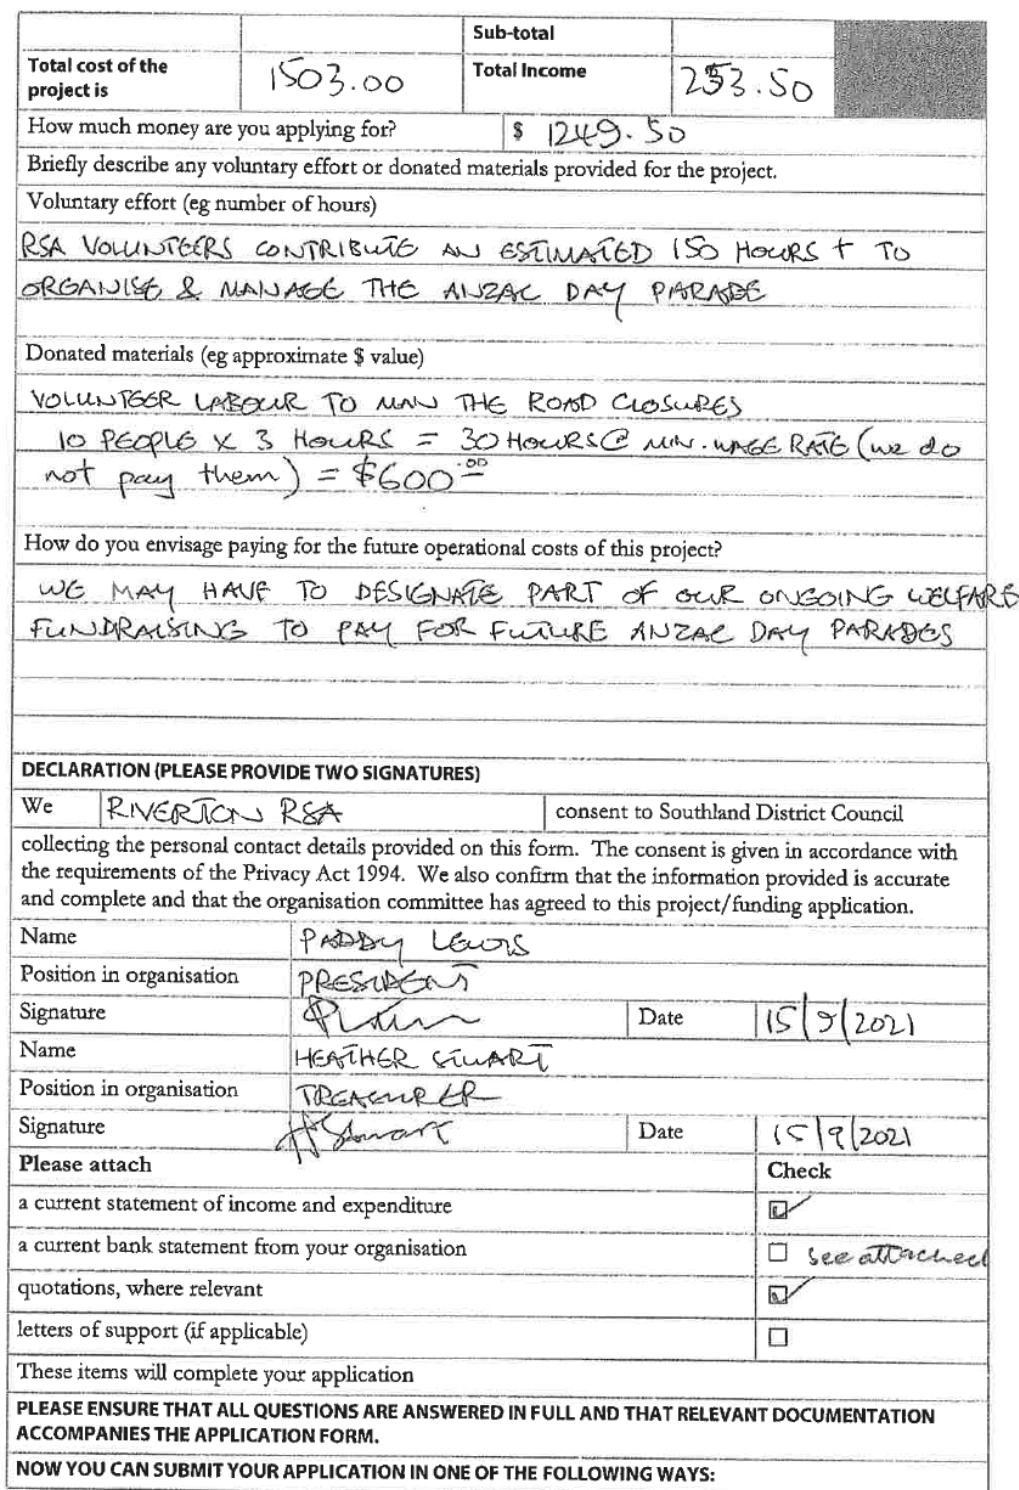 Sub-total
Total cost of the project is 1503.00 Total Income 253.50
How much money are you applying for? $ 1249.50
Briefly describe any voluntary effort or donated materials provided for the project.
Voluntary effort (eg number of hours)
RSA VOLUNTEERS CONTRIBUTE AN ESTIMATED 150 HOURS + TO
ORGANISE & MANAGE THE ANZAC DAY PARADE
Donated materials (eg approximate $ value)
VOLUNTEER LABOUR TO MAN THE ROAD CLOSURES
10 PEOPLE X 3 HOURS = 30 HOURS @ MIN. WAGE RATE (we do
not pay them) = $600.00
How do you envisage paying for the future operational costs of this project?
WE MAY HAVE TO DESIGNATE PART OF OUR ONGOING WELFARE
FUNDRAISING TO PAY FOR FUTURE ANZAC DAY PARADES
DECLARATION (PLEASE PROVIDE TWO SIGNATURES)
We RIVERTON RSA consent to Southland District Council
collecting the personal contact details provided on this form. The consent is given in accordance with
the requirements of the Privacy Act 1994. We also confirm that the information provided is accurate
and complete and that the organisation committee has agreed to this project/funding application.
Name PADDY LEWIS
Position in organisation PRESIDENT
Signature Date 15/9/2021
Name HEATHER STUART
Position in organisation TREASURER
Signature HStuart Date 15/9/2021
Please attach Check
a current statement of income and expenditure
a current bank statement from your organisation see attached
quotations, where relevant
letters of support (if applicable)
These items will complete your application
PLEASE ENSURE THAT ALL QUESTIONS ARE ANSWERED IN FULL AND THAT RELEVANT DOCUMENTATION
ACCOMPANIES THE APPLICATION FORM.
NOW YOU CAN SUBMIT YOUR APPLICATION IN ONE OF THE FOLLOWING WAYS: